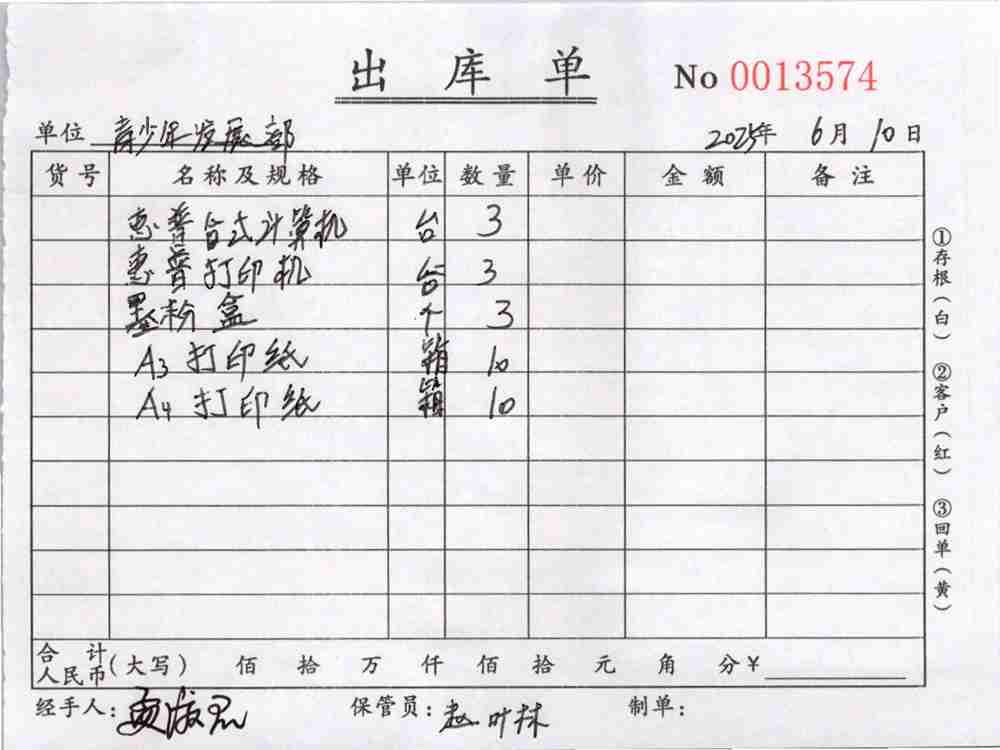 出库单 No 0013574
单位 青少年发展部 2025年 6月 10日
货号 名称及规格 单位 数量 单价 金额 备注
惠普台式计算机 台 3
惠普打印机 台 3
墨粉盒 个 3
A3 打印纸 箱 10
A4 打印纸 箱 10
合计人民币(大写) 佰 拾 万 仟 佰 拾 元 角 分¥
经手人: 保管员:赵叶林 制单:
①存根(白) ②客户(红) ③回单(黄)